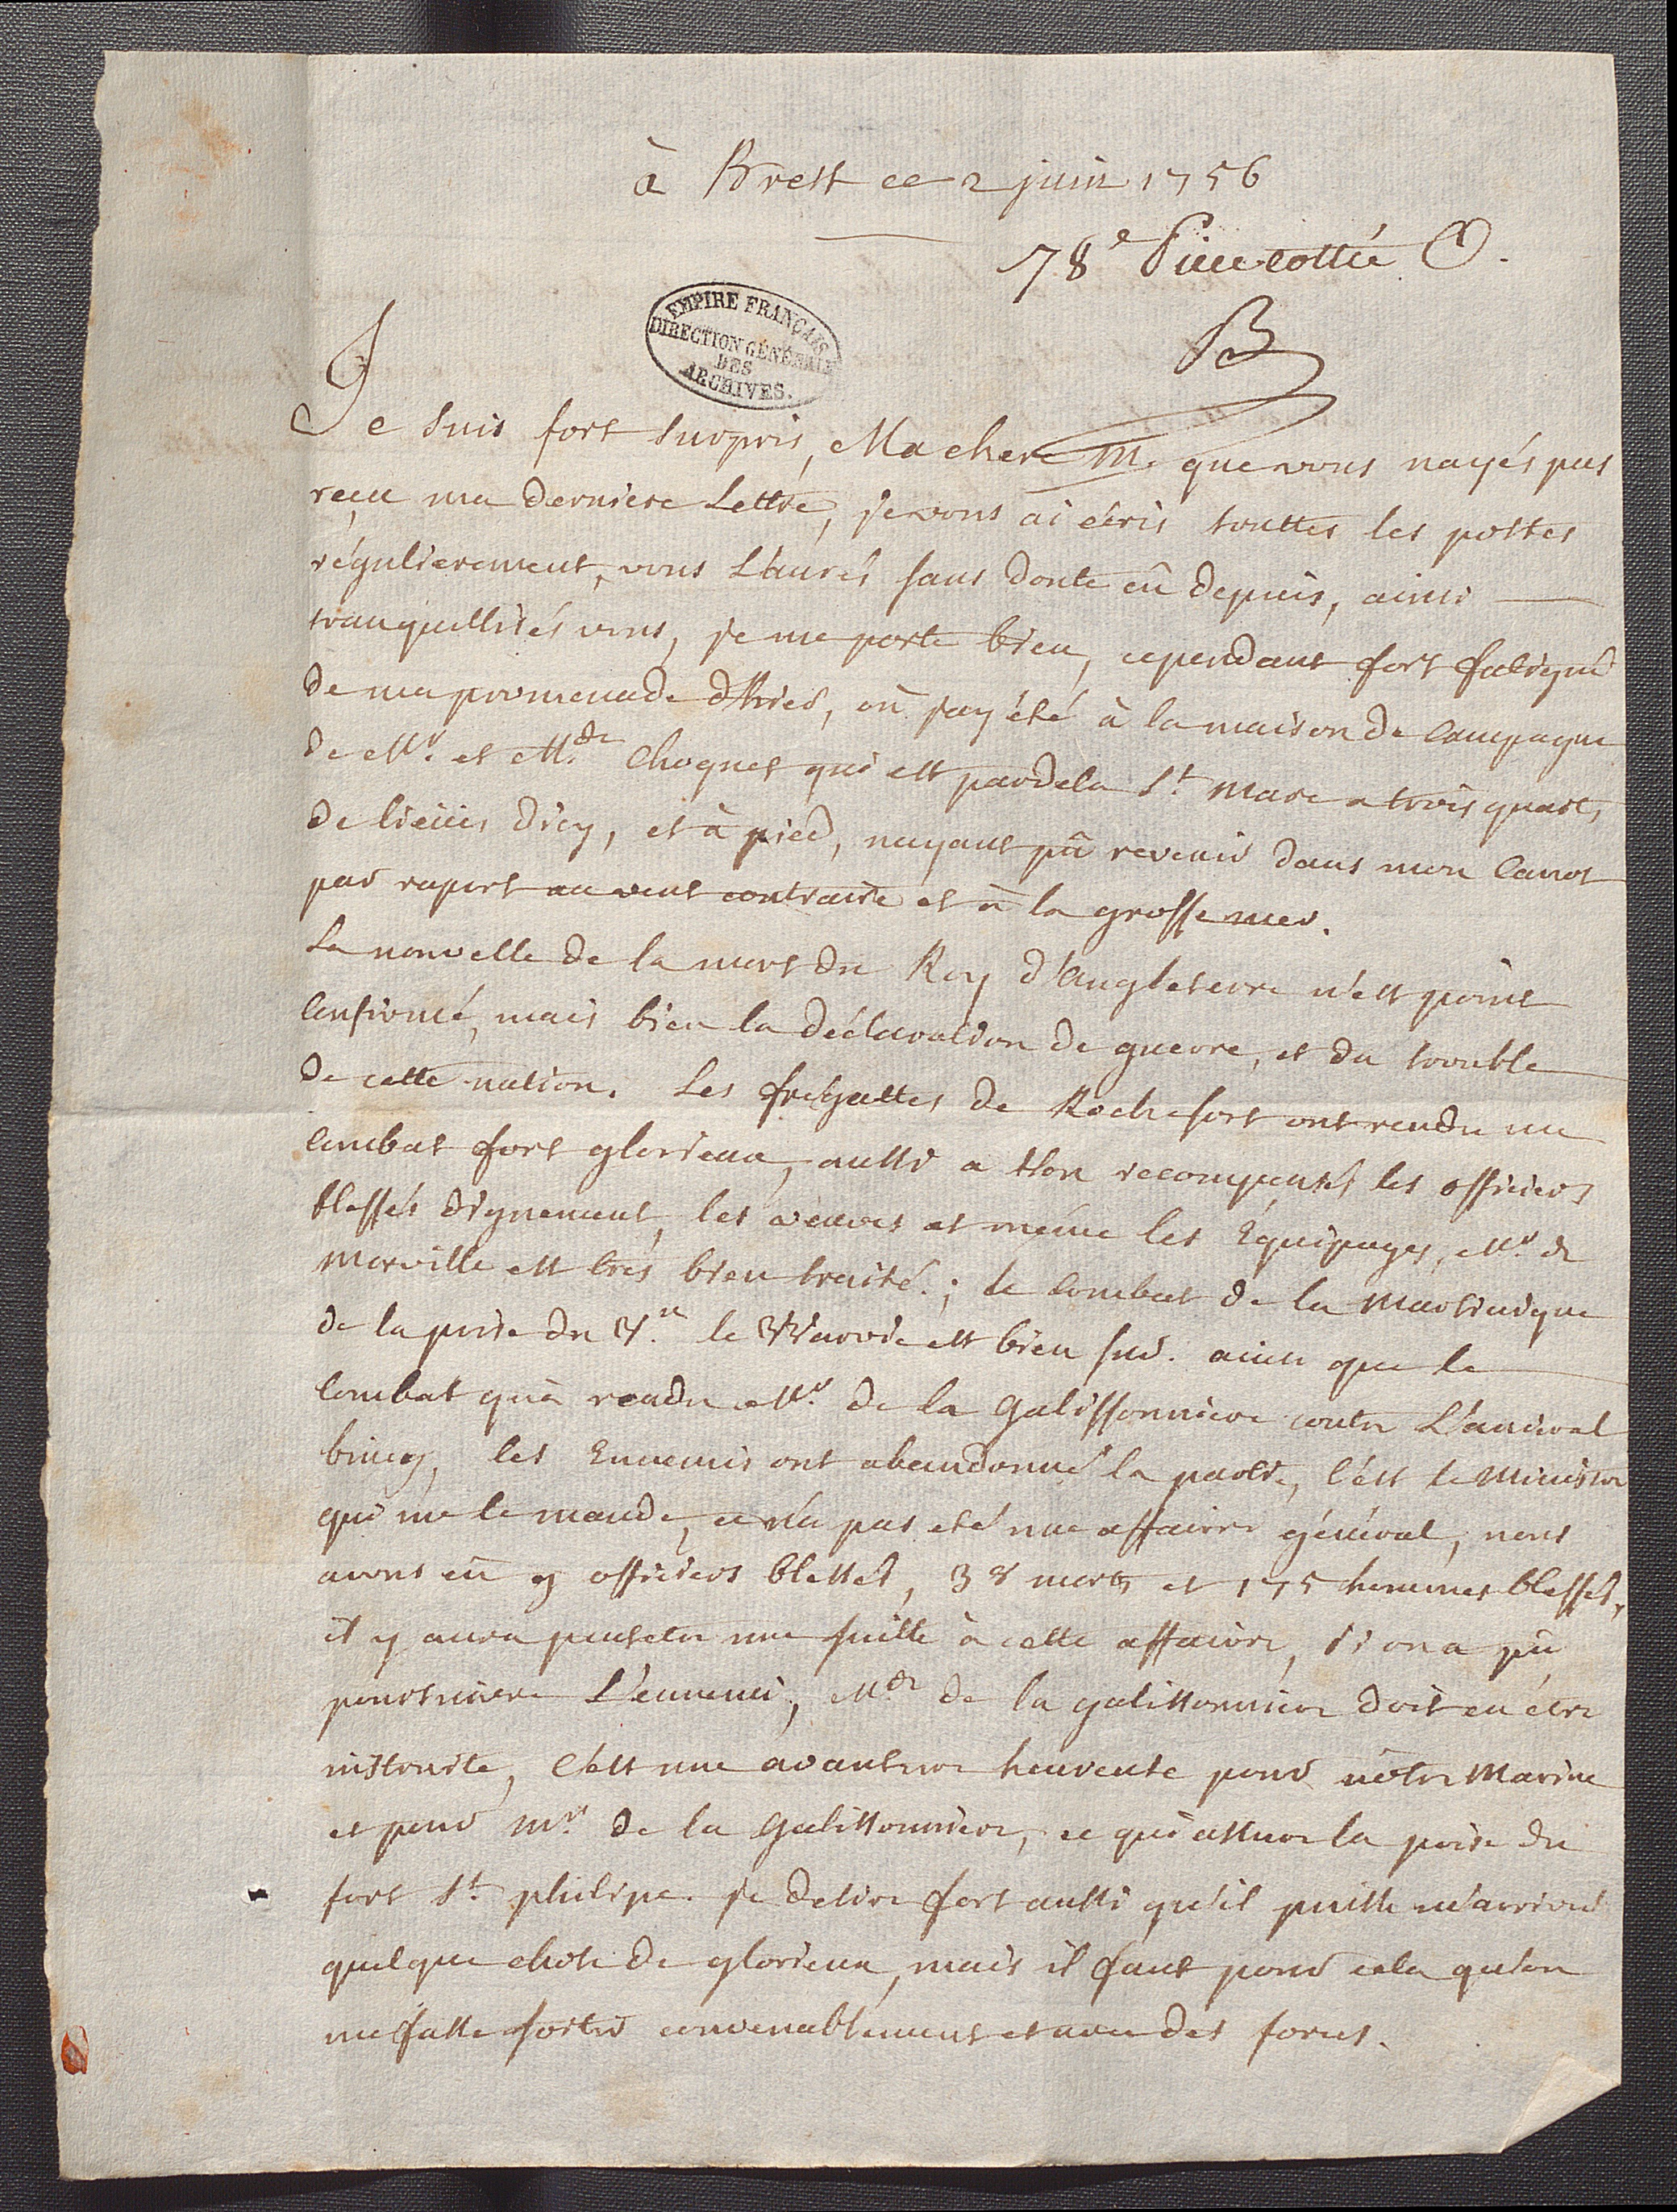 à Brest ce 2 juin 1756
78e Piece cottée O.
EMPIRE FRANÇAIS
DIRECTION GÉNÉRALE
DES
ARCHIVES.
B
Je suis fort surpris, Ma chere M. que vous nayés pas
reçu ma derniere Lettre, je vous ai écris touttes les postes
régulierement, vous L'aurés sans doute eû depuis, ainsi
tranquillisés vous, je me porte bien, cependant fort fatigué
de ma promenade d'hier, où j'ay été à la maison de Campagne
de Mr. et Mde. Choquet qui est pardela St. Marc a trois quart,
de lieües d'icy, et à pied, nayant pû revenir dans mon Canot
par raport au vent contraire et à la grosse mer.
La nouvelle de la mort du Roy d'Angleterre n'est point
Confirmé, mais bien la déclaration de guerre, et du trouble
de cette nation. Les fregattes de Rochefort ont rendu un
Combat fort glorieux, aussi a t'on recompensés les officiers
blessés dignement, les veuves et même les Équipages, Mr. de
Morville est trés bien traité.; le Combat de la Martinique
de la prise du Vau. le Warvic est bien sur. ainsi que le
Combat qu'a rendu Mr. de la Galissonniere contre L'amiral
bincq, les Ennemis ont abandonné la partie, C'est le Ministre
qui me le mande, ce n'a pas eté une affaire général, nous
avons eû 9 officiers blessés, 38 morts et 175 hommes blessés,
il y aura peutetre une suitte à cette affaire, si on a pû
poursuivre L'ennemi, Mde de la galissonniere doit en être
instruite, C'est une avanture heureuse pour nôtre Marine
et pour Mr. de la Galissonniere, ce qui assure la prise du
fort St. philipe. je desire fort aussi qu'il puisse m'arriver
quelque chose de glorieux, mais il faut pour cela qu'on
me fasse sortir convenablement et avec des forces.